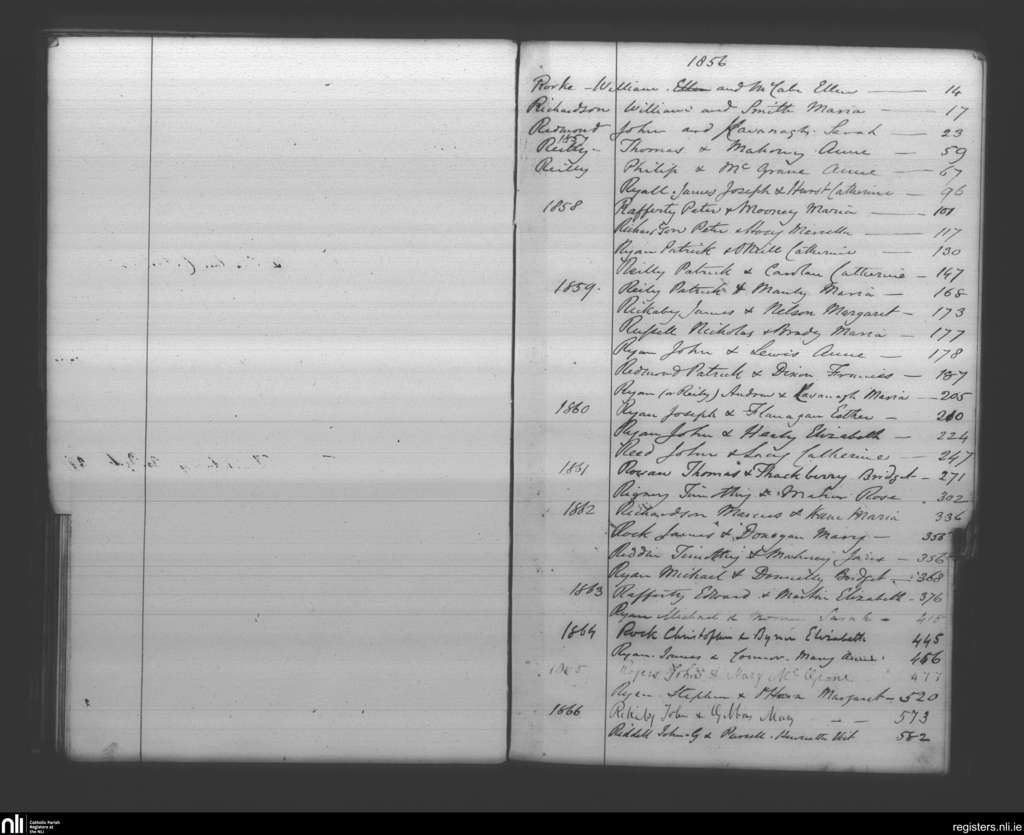 1856
Rorke - William and McCabe Ellen — 14
Richardson William and Smith Maria — 17
Redmond John and Kavanagh Sarah — 23
1857
Reilly - Thomas & Mahony Anne — 59
Reilly Philip & McGrane Anne — 67
Ryall James Joseph & Hurst Catherine — 96
1858 Rafferty Peter & Mooney Maria — 101
Richardson Peter & — 117
Ryan Patrick & O'Neill Catherine — 130
Reilly Patrick & Carolan Catherine — 147
1859. Reily Patrick & Manly Maria — 168
Rickaby James & Nelson Margaret — 173
Russell Nicholas & Brady Maria — 177
Ryan John & Lewis Anne — 178
Redmond Patrick & Dixon Frances — 187
Ryan (or Reily) Andrew & Kavanagh Maria — 205
1860 Ryan Joseph & Flanagan Esther — 210
Ryan John & Healy Elizabeth — 224
Reed John & Lacy Catherine — 247
1861 Rowan Thomas & Thackberry Bridget — 271
Rigney Timothy & Maher Rose 302
1862 Richardson Marcus & Kane Maria 336
Rock James & Donegan Mary — 353
Riddin Timothy & Jane — 356
Ryan Michael & Donnelly Bridget — 368
1863 Rafferty Edward & Martin Elizabeth - 376
Ryan Michael & Sarah - 415
1864 Rock Christopher & Byrne Elizabeth 445
Ryan James & Connor Mary Anne 456
1865 Rogers John & Mary McGrane 477
Ryan Stephen & O'Hara Margaret — 520
1866 Rikaby John & Gibbons Mary — 573
Riddell John G & Purcell Henrietta 582
nli
Catholic Parish
Registers at
the NLI
registers.nli.ie